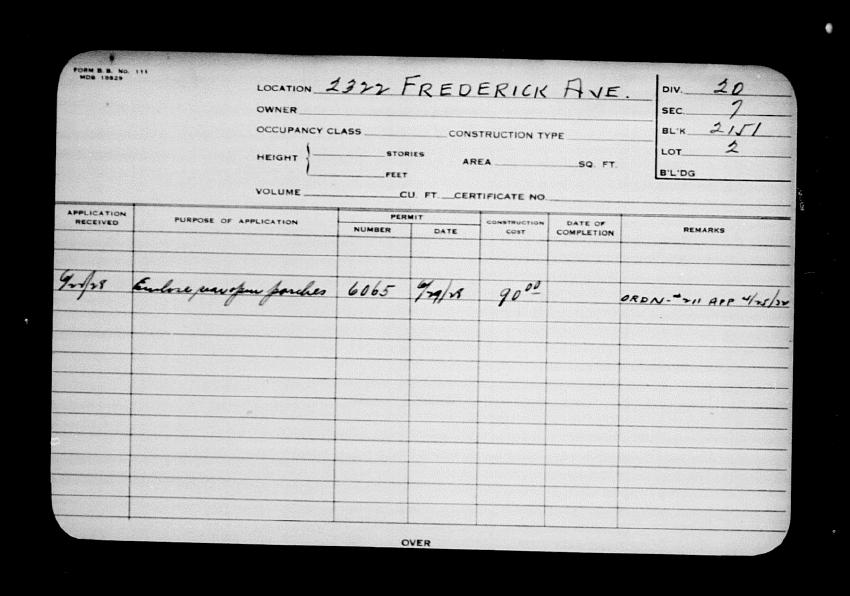 FORM B. B. No. 111
MDB 15829
LOCATION 2322 FREDERICK AVE.
DIV. 20
OWNER
SEC. 7
OCCUPANCY CLASS CONSTRUCTION TYPE
BL'K 2151
HEIGHT STORIES AREA SQ. FT.
LOT 2
FEET
B'L'DG
VOLUME CU. FT. CERTIFICATE NO.
APPLICATION RECEIVED PURPOSE OF APPLICATION PERMIT NUMBER DATE CONSTRUCTION COST DATE OF COMPLETION REMARKS
Enclose rear open porches 6065 6/29/28 90 00 ORDN-#211 APP
OVER